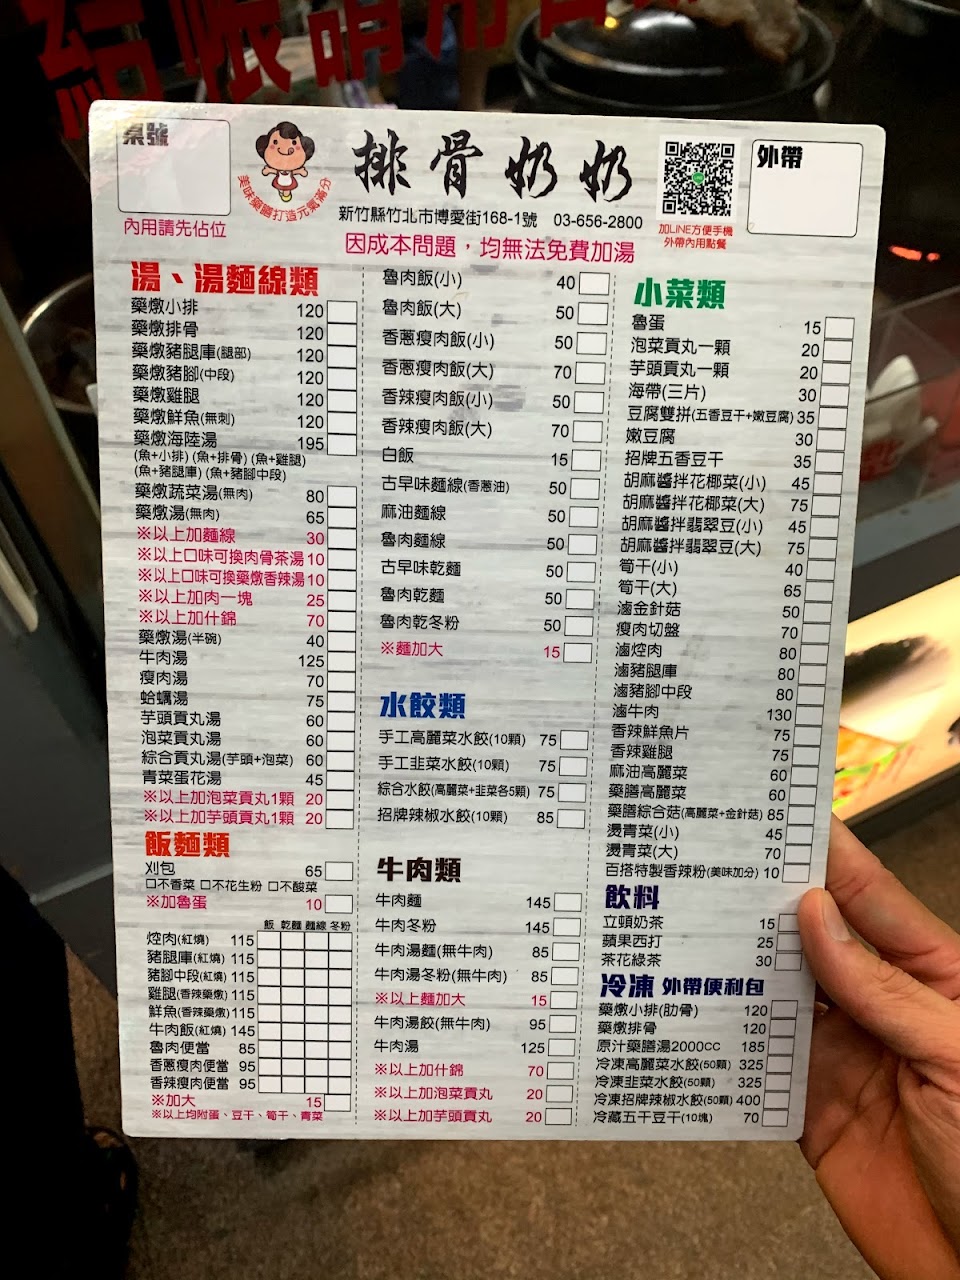 結帳請用
桌號
內用請先佔位
美味藥膳打造元氣滿分
排骨奶奶
新竹縣竹北市博愛街168-1號 03-656-2800
因成本問題，均無法免費加湯
加LINE方便手機
外帶內用點餐
外帶
湯、湯麵線類
藥燉小排 120
藥燉排骨 120
藥燉豬腿庫(腿部) 120
藥燉豬腳(中段) 120
藥燉雞腿 120
藥燉鮮魚(無刺) 120
藥燉海陸湯 195
(魚+小排) (魚+排骨) (魚+雞腿)
(魚+豬腿庫) (魚+豬腳中段)
藥燉蔬菜湯(無肉) 80
藥燉湯(無肉) 65
※以上加麵線 30
※以上口味可換肉骨茶湯 10
※以上口味可換藥燉香辣湯 10
※以上加肉一塊 25
※以上加什錦 70
藥燉湯(半碗) 40
牛肉湯 125
瘦肉湯 70
蛤蠣湯 75
芋頭貢丸湯 60
泡菜貢丸湯 60
綜合貢丸湯(芋頭+泡菜) 60
青菜蛋花湯 45
※以上加泡菜貢丸1顆 20
※以上加芋頭貢丸1顆 20
飯麵類
刈包 65
口不香菜 口不花生粉 口不酸菜
※加魯蛋 10
飯 乾麵 麵線 冬粉
焢肉(紅燒) 115
豬腿庫(紅燒) 115
豬腳中段(紅燒) 115
雞腿(香辣藥燉) 115
鮮魚(香辣藥燉) 115
牛肉飯(紅燒) 145
魯肉便當 85
香蔥瘦肉便當 95
香辣瘦肉便當 95
※加大 15
※以上均附蛋、豆干、筍干、青菜
魯肉飯(小) 40
魯肉飯(大) 50
香蔥瘦肉飯(小) 50
香蔥瘦肉飯(大) 70
香辣瘦肉飯(小) 50
香辣瘦肉飯(大) 70
白飯 15
古早味麵線(香蔥油) 50
麻油麵線 50
魯肉麵線 50
古早味乾麵 50
魯肉乾麵 50
魯肉乾冬粉 50
※麵加大 15
水餃類
手工高麗菜水餃(10顆) 75
手工韭菜水餃(10顆) 75
綜合水餃(高麗菜+韭菜各5顆) 75
招牌辣椒水餃(10顆) 85
牛肉類
牛肉麵 145
牛肉冬粉 145
牛肉湯麵(無牛肉) 85
牛肉湯冬粉(無牛肉) 85
※以上麵加大 15
牛肉湯餃(無牛肉) 95
牛肉湯 125
※以上加什錦 70
※以上加泡菜貢丸 20
※以上加芋頭貢丸 20
小菜類
魯蛋 15
泡菜貢丸一顆 20
芋頭貢丸一顆 20
海帶(三片) 30
豆腐雙拼(五香豆干+嫩豆腐) 35
嫩豆腐 30
招牌五香豆干 35
胡麻醬拌花椰菜(小) 45
胡麻醬拌花椰菜(大) 75
胡麻醬拌翡翠豆(小) 45
胡麻醬拌翡翠豆(大) 75
筍干(小) 40
筍干(大) 65
滷金針菇 50
瘦肉切盤 70
滷焢肉 80
滷豬腿庫 80
滷豬腳中段 80
滷牛肉 130
香辣鮮魚片 75
香辣雞腿 75
麻油高麗菜 60
藥膳高麗菜 60
藥膳綜合菇(高麗菜+金針菇) 85
燙青菜(小) 45
燙青菜(大) 70
百搭特製香辣粉(美味加分) 10
飲料
立頓奶茶 15
蘋果西打 25
茶花綠茶 30
冷凍 外帶便利包
藥燉小排(肋骨) 120
藥燉排骨 120
原汁藥膳湯2000CC 185
冷凍高麗菜水餃(50顆) 325
冷凍韭菜水餃(50顆) 325
冷凍招牌辣椒水餃(50顆) 400
冷藏五干豆干(10塊) 70